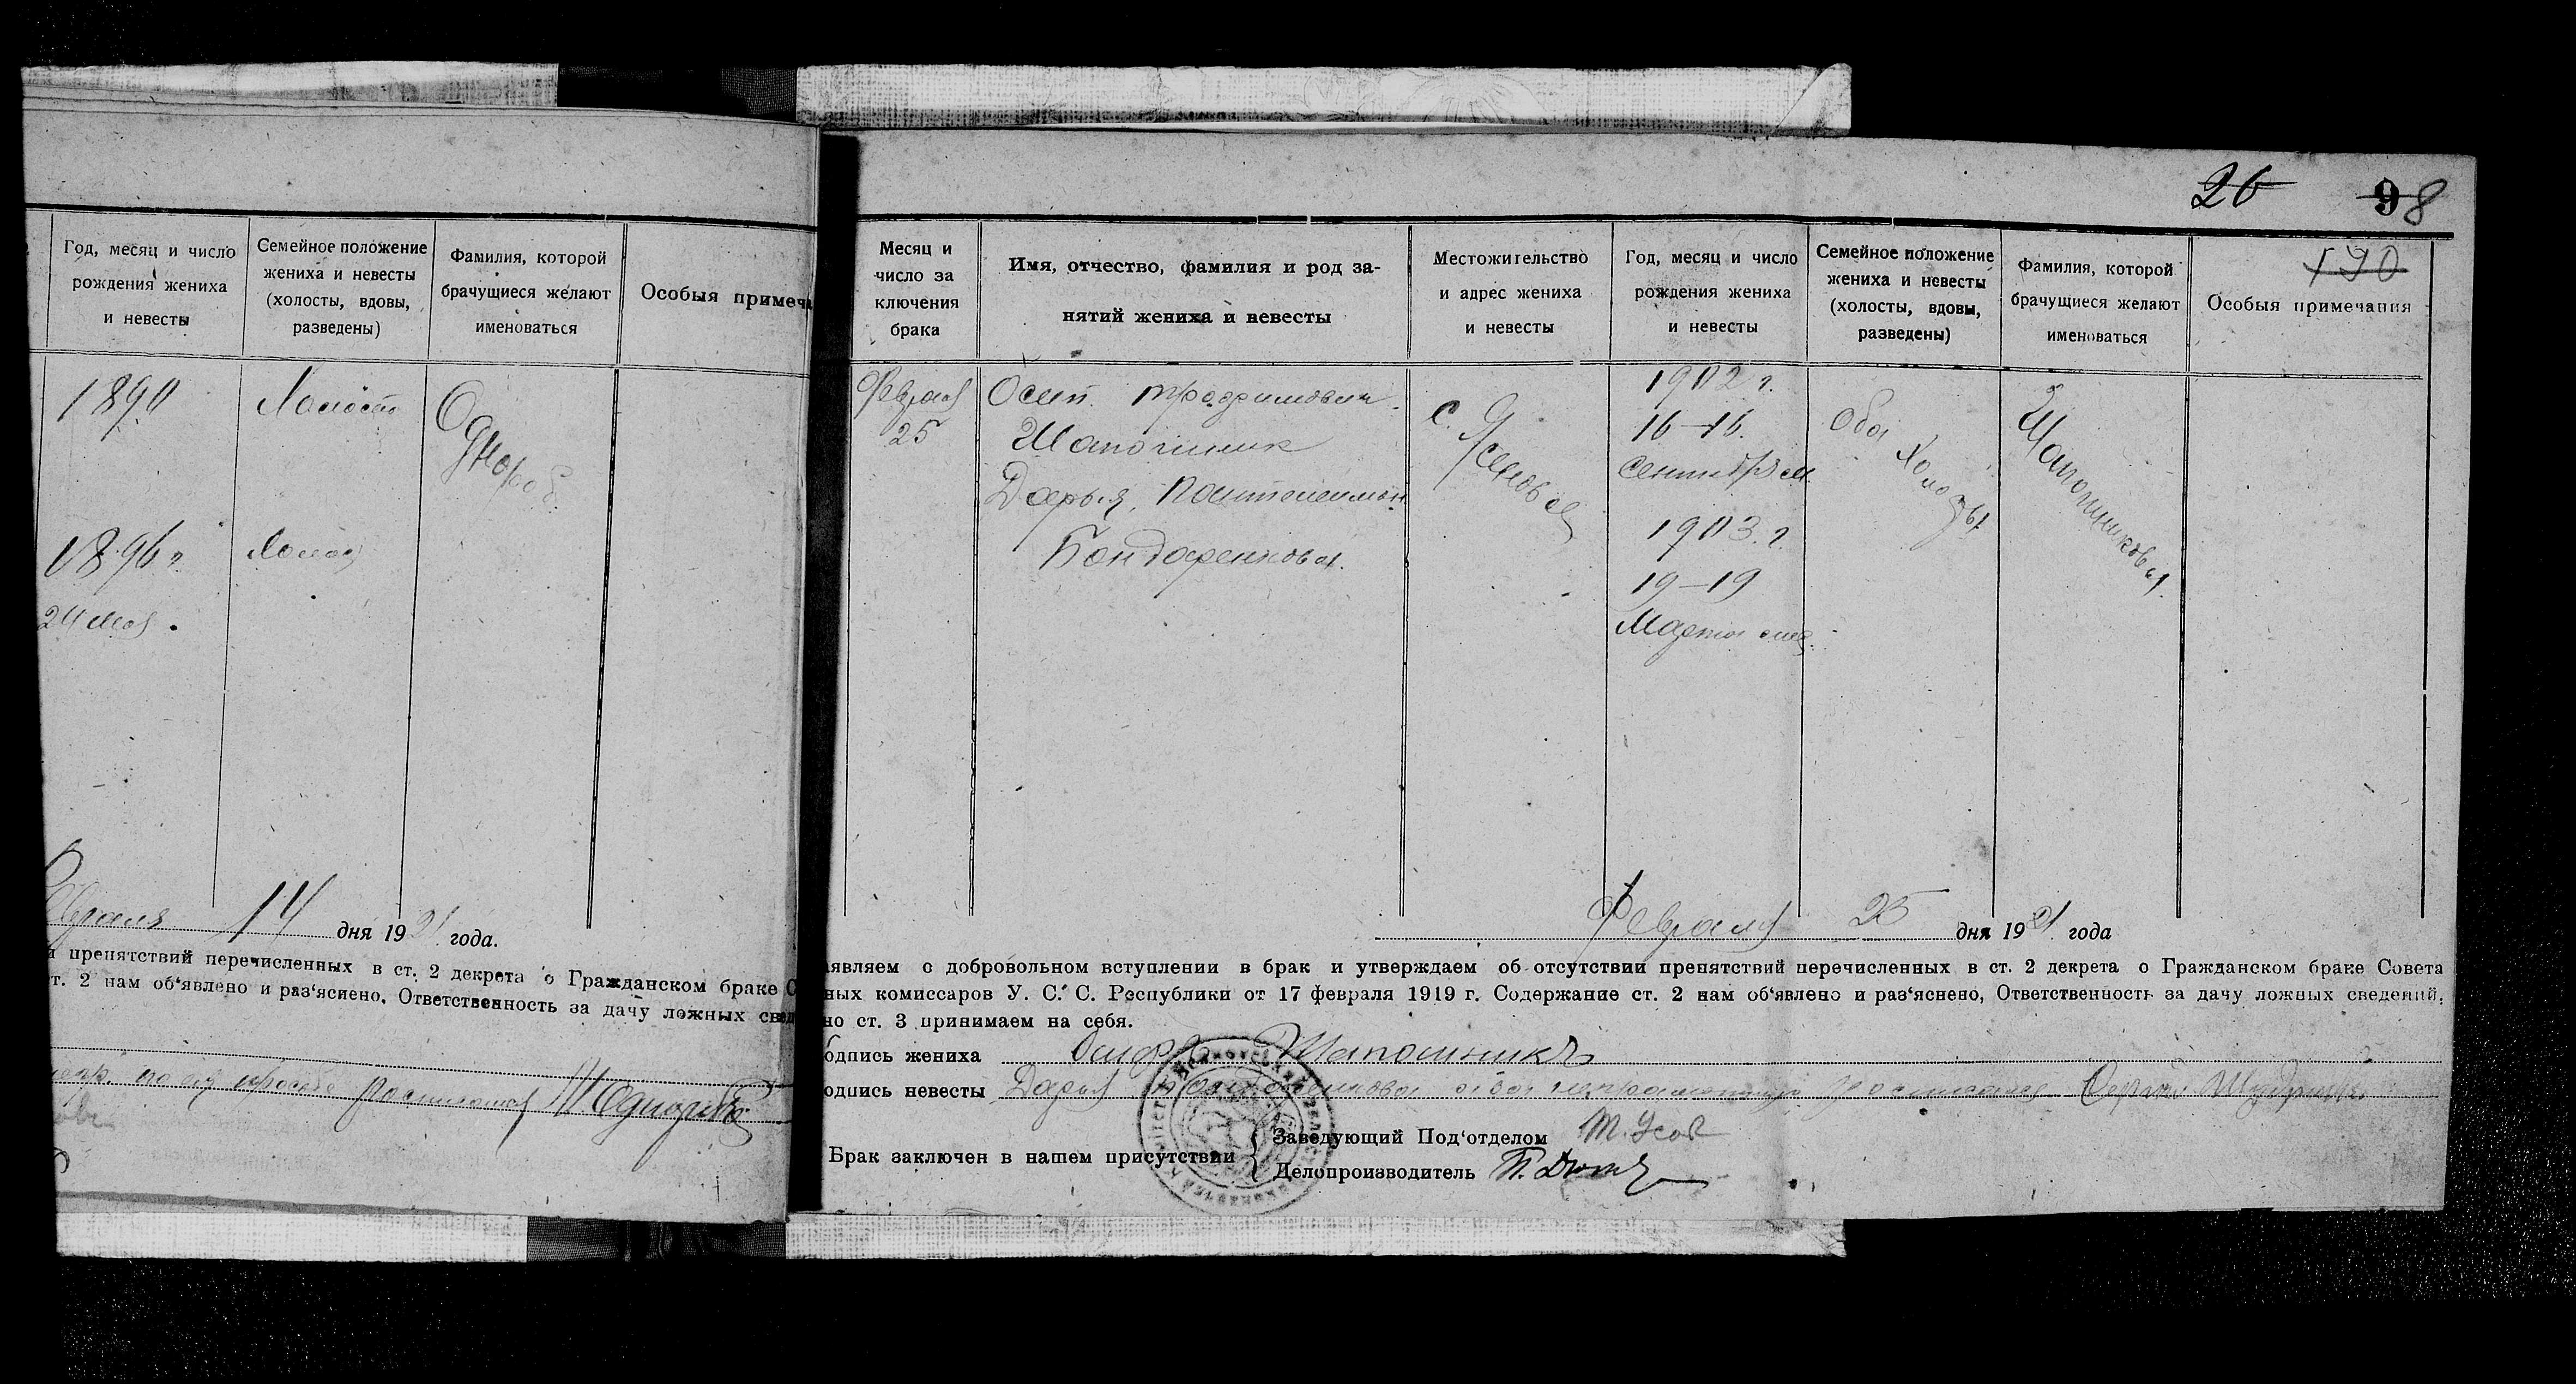 Год, месяц и число
рождения жениха
и невесты
Семейное положение
жениха и невесты
(холосты, вдовы,
разведены)
Фамилия, которой
брачущиеся желают
именоваться
Особыя примеча
1890
Холост
Однороб
1896 г
24 мая.
14 дня 1921 года.
препятствий перечисленных в ст. 2 декрета о Гражданском браке С
т. 2 нам об‘явлено и раз‘яснено, Ответственность за дачу ложных свед
просьбе
26
98
190
Месяц и
число за
ключения
брака
Имя, отчество, фамилия и род за-
нятий жениха и невесты
Местожительство
и адрес жениха
и невесты
Год, месяц и число
рождения жениха
и невесты
Семейное положение
жениха и невесты
(холосты, вдовы,
разведены)
Фамилия, которой
брачущиеся желают
именоваться
Особыя примечания
Февраля
25
Осип Трофимович
Шапошник
Дарья
Бондаренкова
с. Ясеновое
1902 г.
16–16.
Сентября
1903. г.
19–19
Марта
Оба холосты
Шапошниковы
Февраля 25 дня 1921 года
аявляем о добровольном вступлении в брак и утверждаем об отсутствии препятствий перечисленных в ст. 2 декрета о Гражданском браке Совета
ных комиссаров У. С. С. Республики от 17 февраля 1919 г. Содержание ст. 2 нам об‘явлено и раз‘яснено, Ответственность за дачу ложных сведений,
но ст. 3 принимаем на себя.
одпись жениха Шапошникъ
одпись невесты Дарья
Брак заключен в нашем присутствии
Заведующий Под‘отделом М. Усов
Делопроизводитель